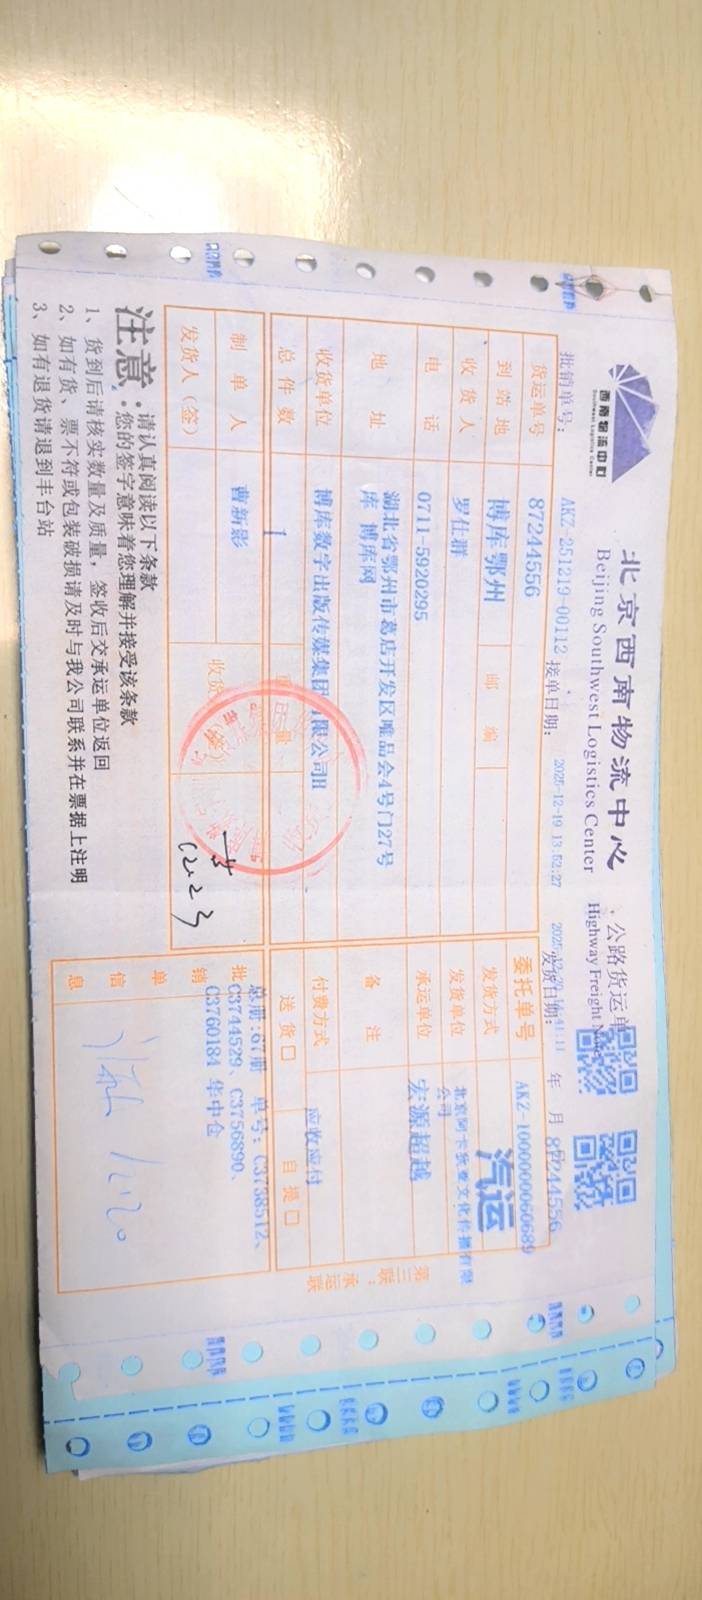 西南物流中心
Southwest Logistics Center
北京西南物流中心
Beijing Southwest Logistics Center
公路货运单
Highway Freight
批销单号： AKZ-251219-00112 接单日期： 2025-12-19 13:52:27 发货日期： 年 月 87244556
货运单号 87244556 委托单号 AKZ-1000000060689
到站地 博库鄂州 邮编 发货方式 汽运
收货人 罗仕群 发货单位 北京阿卡狄亚文化传播有限公司
电话 0711-5920295 承运单位 宏源超越
地址 湖北省鄂州市葛店开发区唯品会4号门27号
库 博库网
备注
收货单位 博库数字出版传媒集团有限公司H 付费方式 应收应付
总件数 1 重量 送货□ 自提□
制单人 曹新影 收货人（签）
发货人（签）
12.23
批销单信息
总册：67册 单号：C3738512、
C3744529、C3756890、
C3760184 华中仓
12.20
第三联：承运联
注意：请认真阅读以下条款
您的签字意味着您理解并接受该条款
1、货到后请核实数量及质量，签收后交承运单位返回
2、如有货、票不符或包装破损请及时与我公司联系并在票据上注明
3、如有退货请退到丰台站